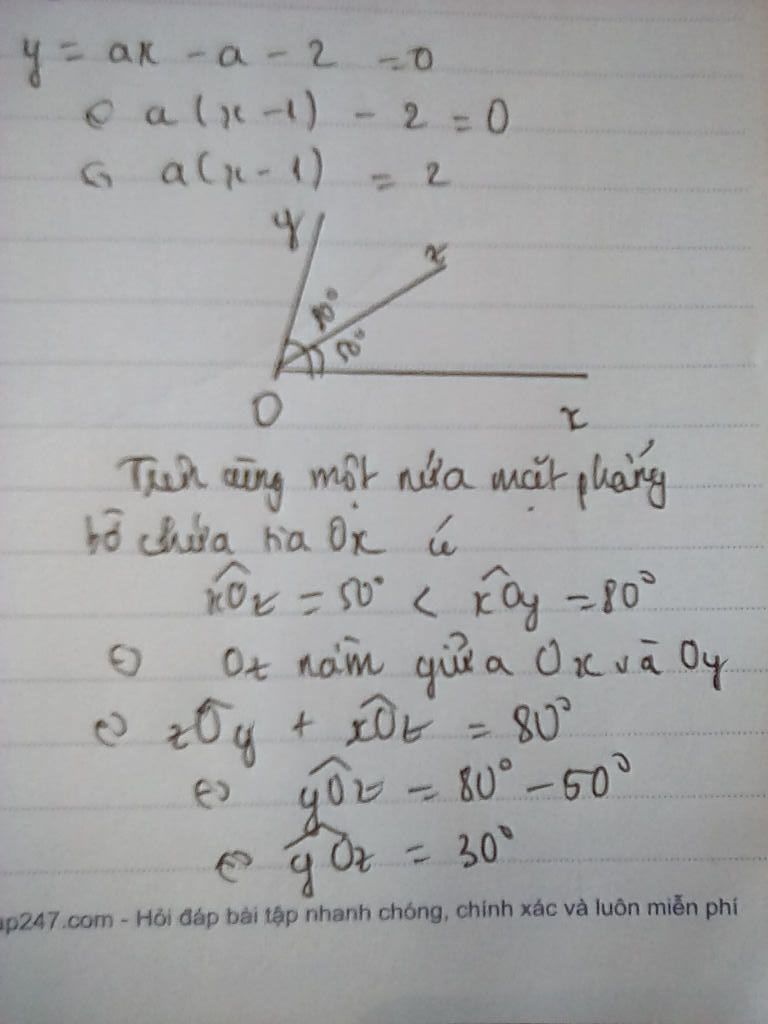 y = ax - a - 2 = 0
⇔ a(x - 1) - 2 = 0
⇔ a(x - 1) = 2
y
z
50°
O
x
Trên cùng một nửa mặt phẳng
bờ chứa tia Ox có
xÔz = 50° < xÔy = 80°
⇔ Oz nằm giữa Ox và Oy
⇔ zÔy + xÔz = 80°
⇔ yÔz = 80° - 50°
⇔ yÔz = 30°
ap247.com - Hỏi đáp bài tập nhanh chóng, chính xác và luôn miễn phí